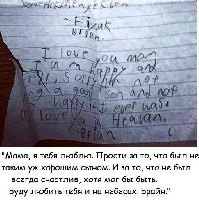 Brian.
I love you mam
I am happy and
Sorry I'm not
a good son and not
happy. if I ever was
I love you in Heavan.
-Brian
"Мама, я тебя люблю. Прости за то, что был не
таким уж хорошим сыном. И за то, что не был
всегда счастлив, хотя мог бы быть.
Буду любить тебя и на небесах. Брайн."